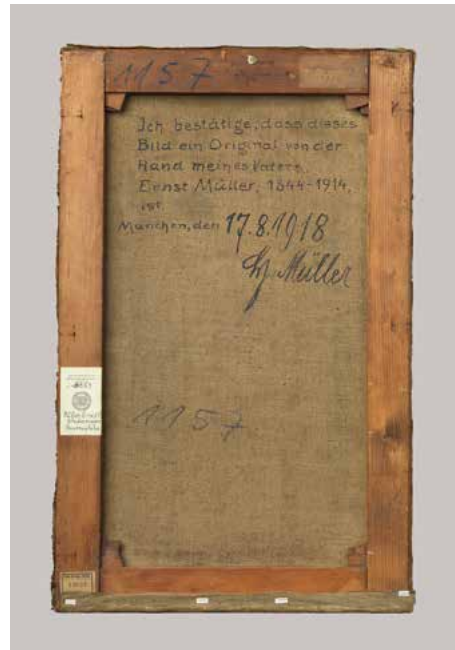 1157
Ich bestätige, dass dieses
Bild ein Original von der
Hand meines Vaters,
Ernst Müller, 1844-1914,
ist.
München, den 17.8.1918
Müller
1157